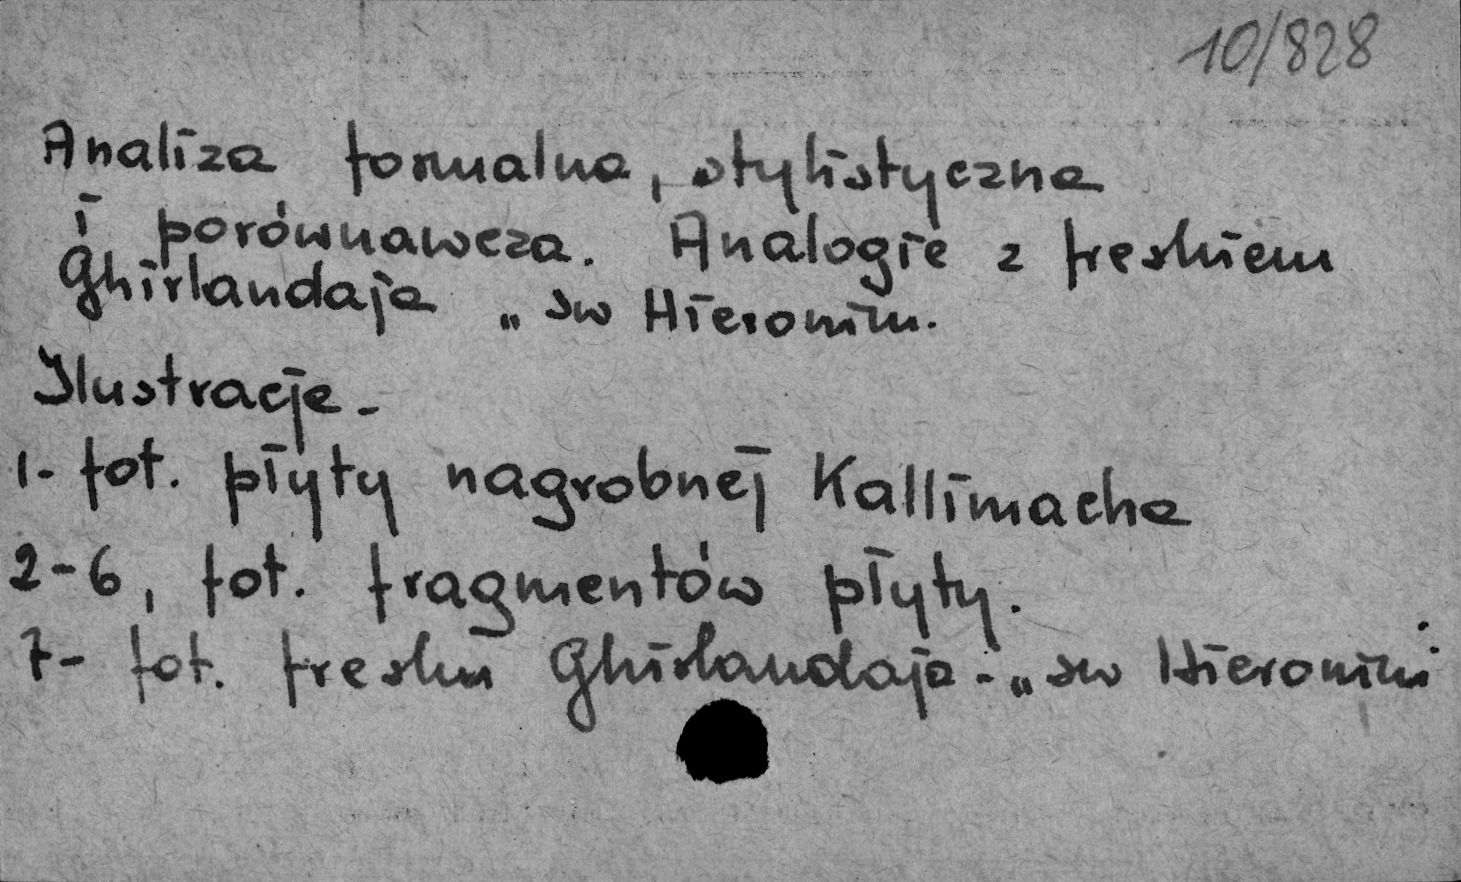 10/828
Analiza formalna, stylistyczna
i porównawcza. Analogie z freskiem
Ghirlandaja „ sw Hieronim.
Ilustracje -
1- fot. płyty nagrobnej Kallimacha
2-6, fot. fragmentów płyty.
7- fot. fresku Ghirlandaja - „ sw Hieronim